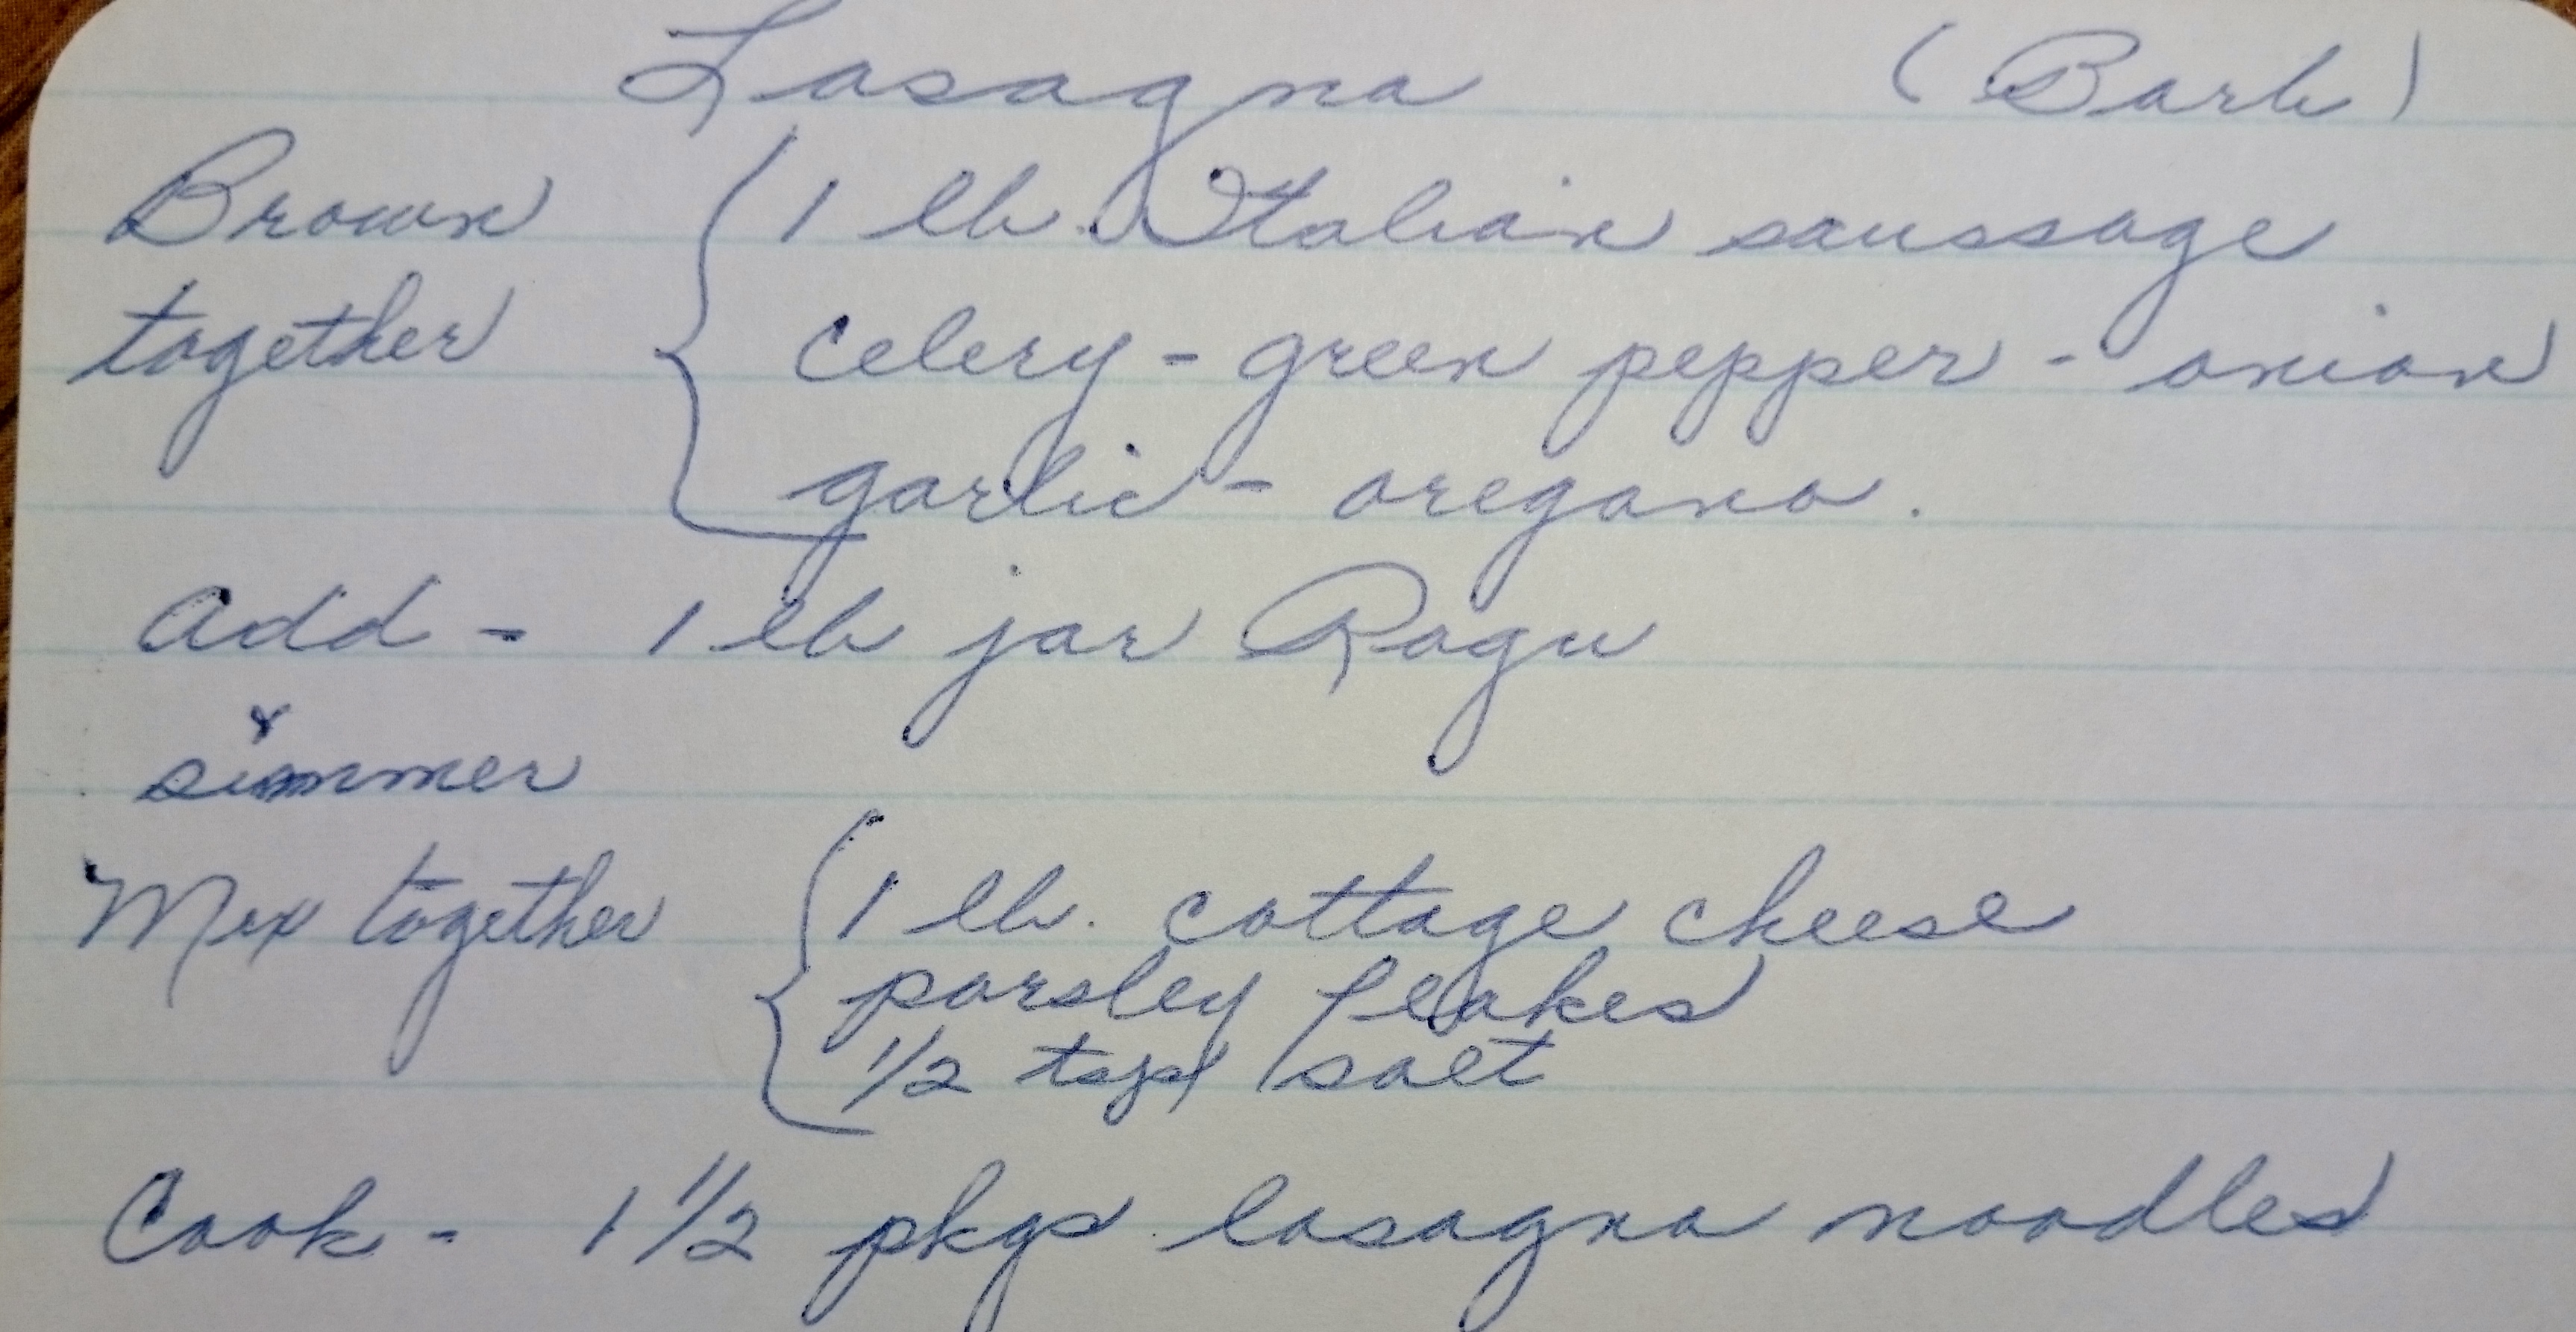 Lasagna (Barb)
Brown { 1 lb. Italian saussage
together celery - green pepper - onion
garlic - oregano.
Add - 1 lb jar Ragu
&
simmer
Mix together { 1 lb. cottage cheese
parsley flakes
1/2 tsp salt
Cook - 1 1/2 pkgs lasagna noodles